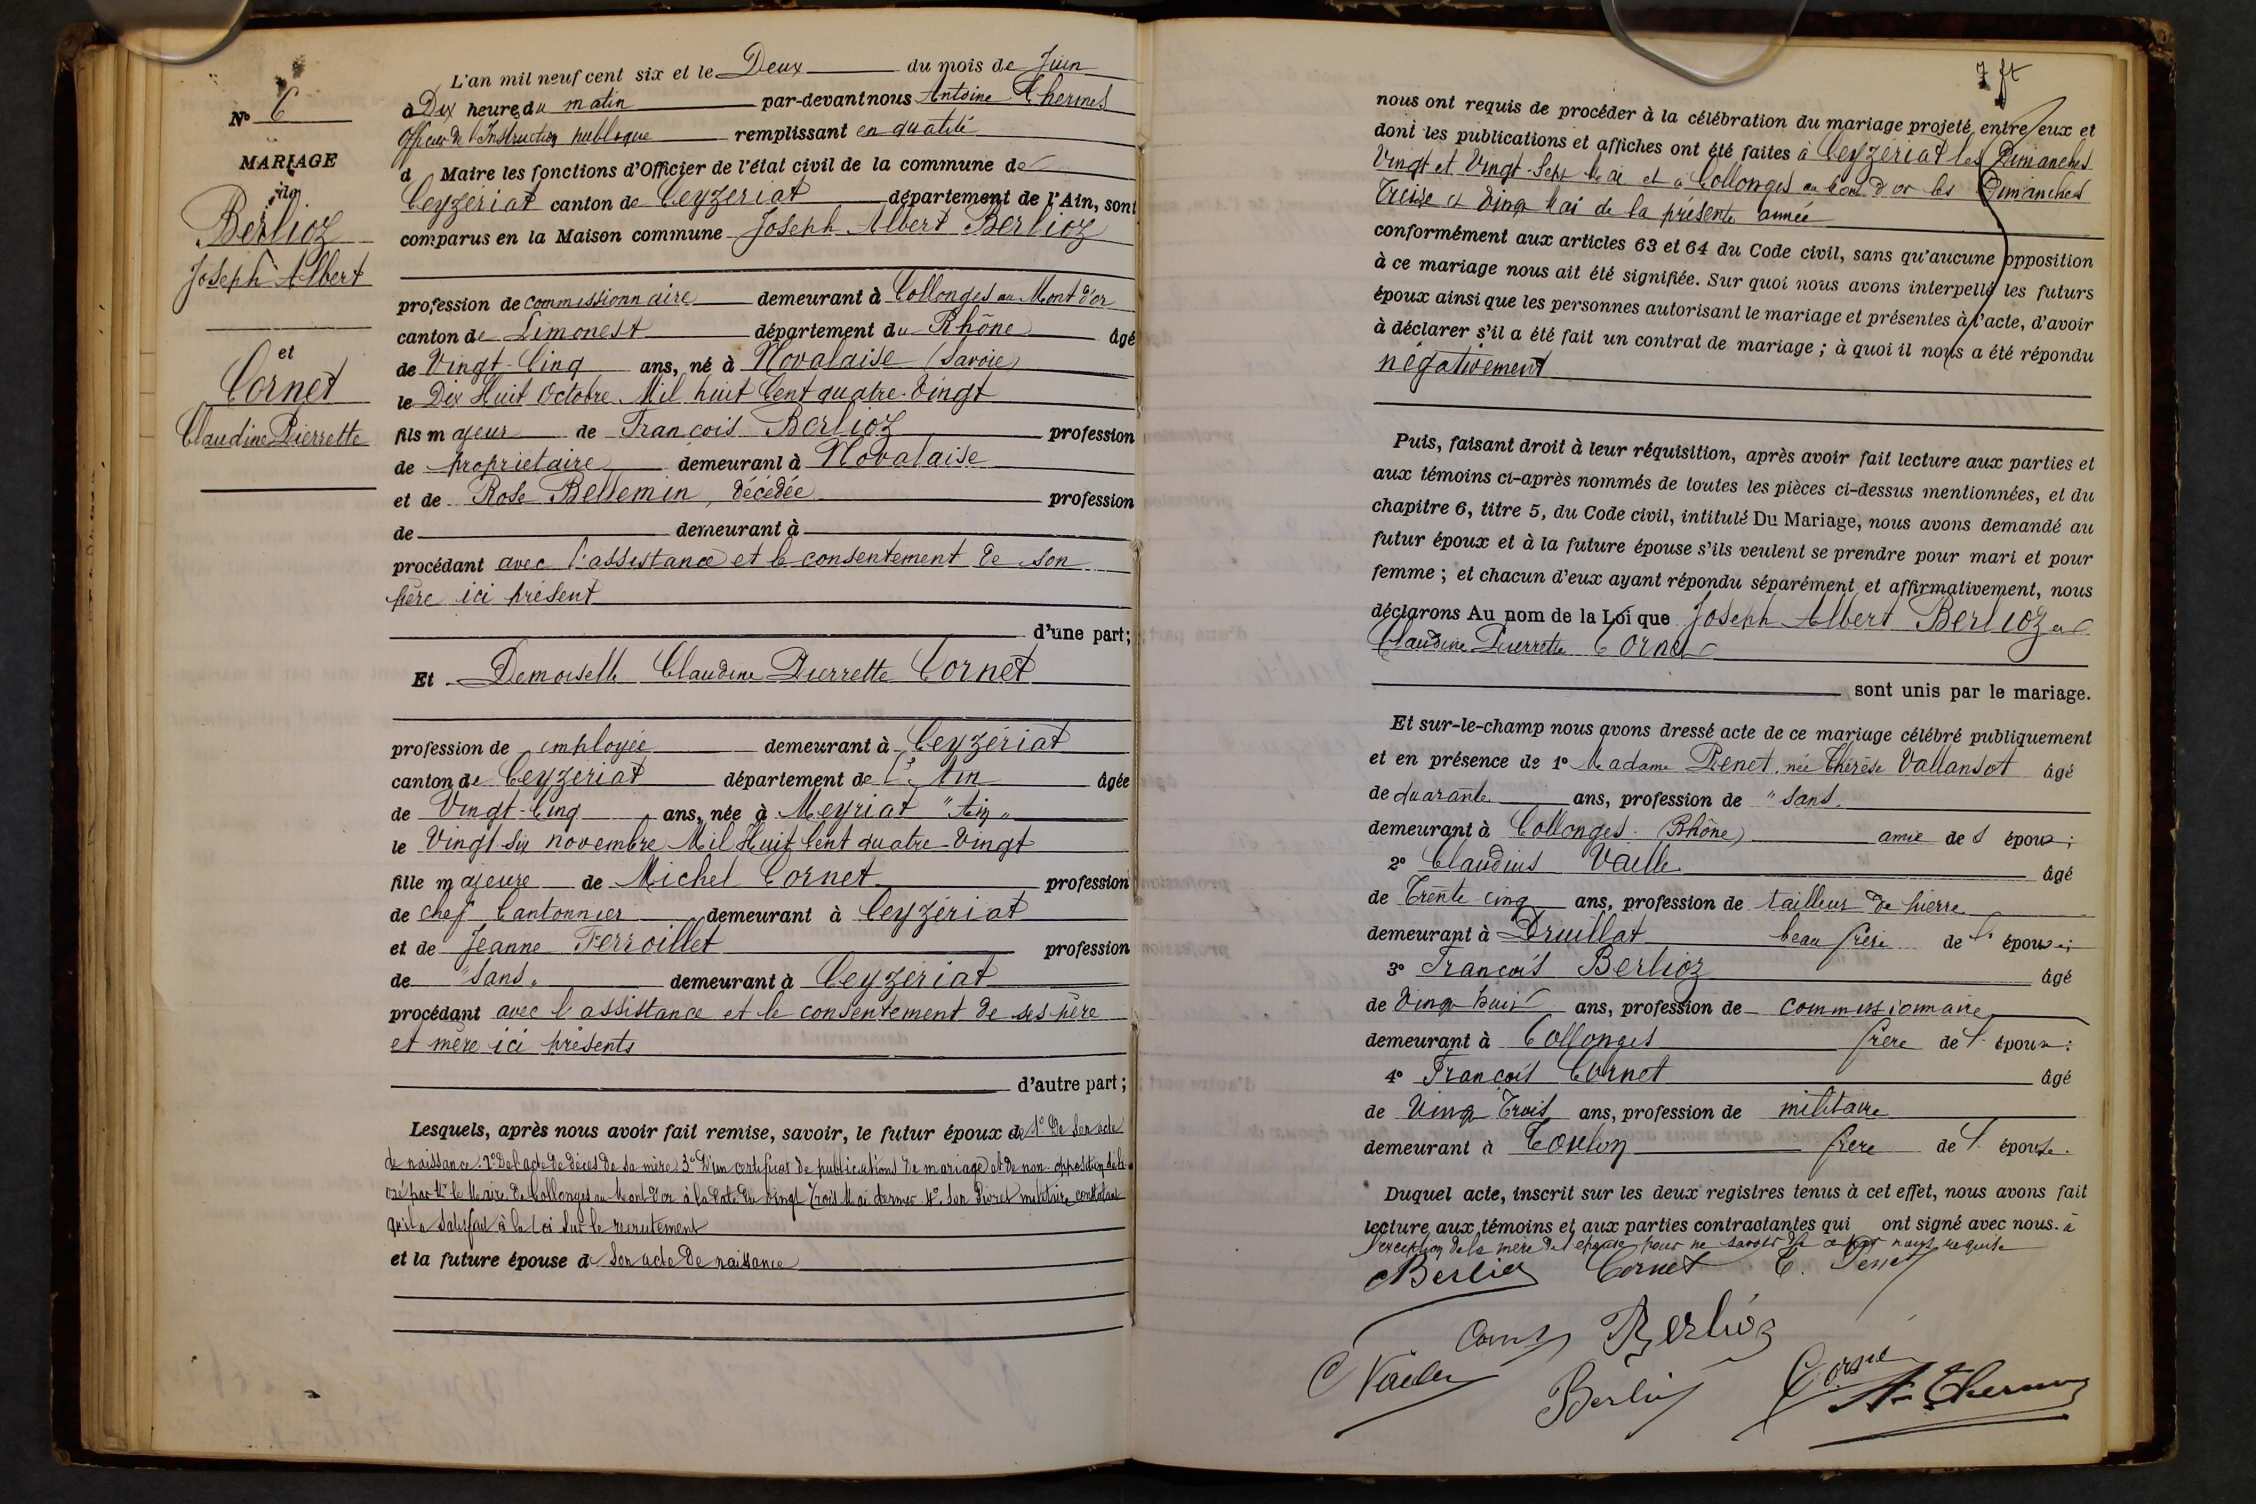 N° 6
MARIAGE
Berlioz
Joseph Albert
et
Cornet
Claudine Pierrette
L'an mil neuf cent six et le Deux du mois de Juin
à Dix heures du matin par-devant nous Antoine Thermes
Officier de l'Instruction publique remplissant en qualité
d Maire les fonctions d'Officier de l'état civil de la commune de
Ceyzériat canton de Ceyzériat département de l'Ain, sont
comparus en la Maison commune Joseph Albert Berlioz
profession de commissionnaire demeurant à Collonges au Mont d'or
canton de Limonest département du Rhône âgé
de Vingt-Cinq ans, né à Novalaise (Savoie)
le Dix Huit Octobre Mil huit Cent quatre-Vingt
fils majeur de François Berlioz profession
de propriétaire demeurant à Novalaise
et de Rose Bellemin, décédée profession
de demeurant à
procédant avec l'assistance et le consentement de son
père ici présent
d'une part;
Et Demoiselle Claudine Pierrette Cornet
profession de employée demeurant à Ceyzériat
canton de Ceyzériat département de l'Ain âgée
de Vingt-Cinq ans, née à Meyriat "Ain"
le Vingt six novembre Mil Huit Cent quatre-Vingt
fille majeure de Michel Cornet profession
de chef Cantonnier demeurant à Ceyzériat
et de Jeanne Ferroillet profession
de "sans" demeurant à Ceyzériat
procédant avec l'assistance et le consentement de ses père
et mère ici présents
d'autre part;
Lesquels, après nous avoir fait remise, savoir, le futur époux de 1° De son acte
de naissance 2° De l'acte de décès de sa mère 3° D'un certificat de publications de mariage et de non-opposition déli
vré par Mr le Maire de Collonges au Mont d'or à la date du vingt trois Mai dernier 4° Son livret militaire constatant
qu'il a satisfait à la Loi sur le recrutement
et la future épouse de Son acte de naissance
7 ft
nous ont requis de procéder à la célébration du mariage projeté entre eux et
dont les publications et affiches ont été faites à Ceyzériat les Dimanches
Vingt et Vingt-Sept Mai et à Collonges au Mont d'or les Dimanches
Treize et Vingt Mai de la présente année
conformément aux articles 63 et 64 du Code civil, sans qu'aucune opposition
à ce mariage nous ait été signifiée. Sur quoi nous avons interpellé les futurs
époux ainsi que les personnes autorisant le mariage et présentes à l'acte, d'avoir
à déclarer s'il a été fait un contrat de mariage; à quoi il nous a été répondu
négativement
Puis, faisant droit à leur réquisition, après avoir fait lecture aux parties et
aux témoins ci-après nommés de toutes les pièces ci-dessus mentionnées, et du
chapitre 6, titre 5, du Code civil, intitulé Du Mariage, nous avons demandé au
futur époux et à la future épouse s'ils veulent se prendre pour mari et pour
femme; et chacun d'eux ayant répondu séparément et affirmativement, nous
déclarons Au nom de la Loi que Joseph Albert Berlioz et
Claudine Pierrette Cornet
sont unis par le mariage.
Et sur-le-champ nous avons dressé acte de ce mariage célébré publiquement
et en présence de 1° Madame Penet, née Thérèse Vallansot âgé
de quarante ans, profession de "sans"
demeurant à Collonges (Rhône) amie de s époux;
2° Claudius Vaille âgé
de Trente cinq ans, profession de tailleur de pierre
demeurant à Druillat beau frère de l' épouse;
3° François Berlioz âgé
de Vingt huit ans, profession de commissionnaire
demeurant à Collonges frère de l' époux;
4° François Cornet âgé
de Vingt Trois ans, profession de militaire
demeurant à Toulon frère de l' épouse.
Duquel acte, inscrit sur les deux registres tenus à cet effet, nous avons fait
lecture aux témoins et aux parties contractantes qui ont signé avec nous. à
l'exception de la mère de l'épouse pour ne savoir de ce par nous requise
Berlioz Cornet T. Penet
Cornet Berlioz
C Vaille Berlioz Cornet A. Thermes